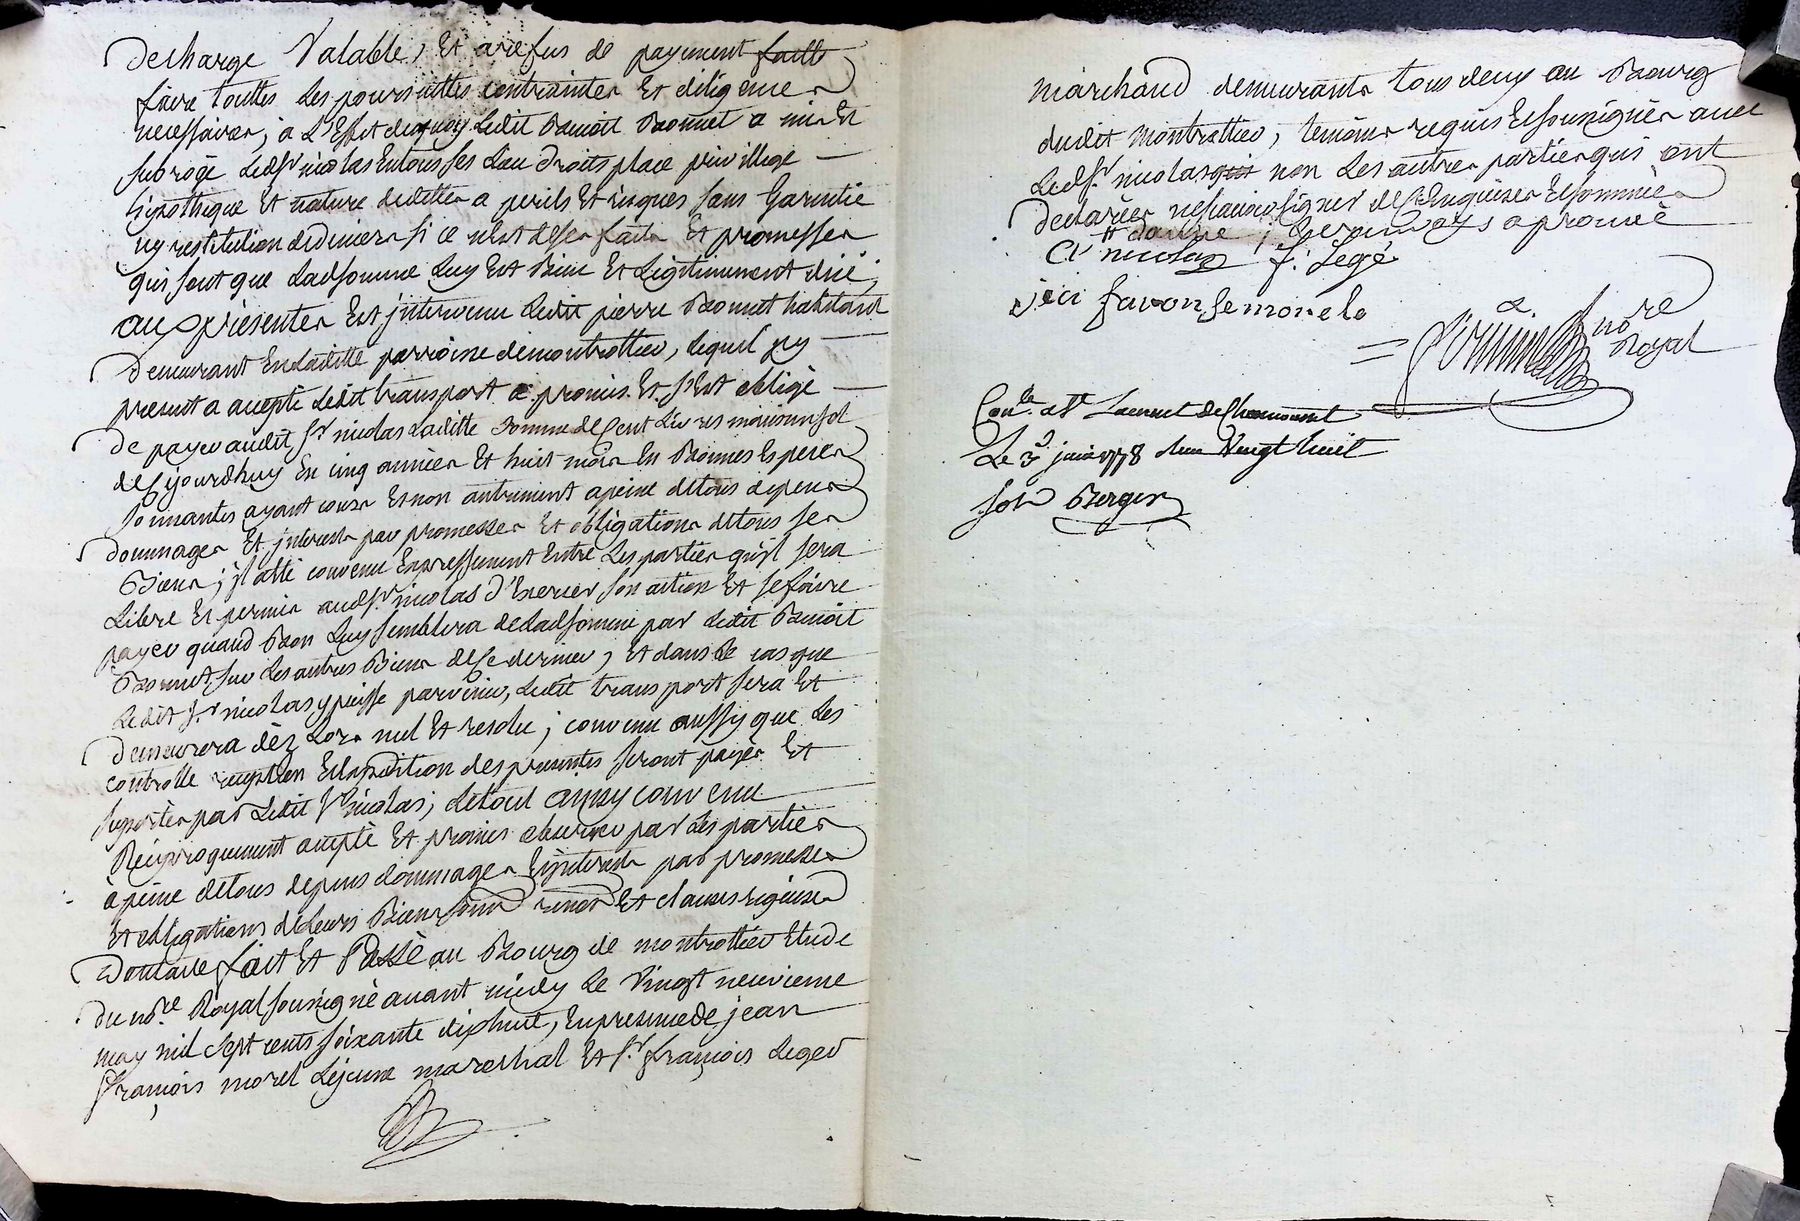 decharge Valable, Et arefus de payement faitte
faire touttes Les poursuittes contraintes Et diligences
necessaires; a L'Effet dequoy Ledit Benoit Bonnet a mis Et
subrogé Ledsr nicolas Entous ses Lieu droits place privillege
hipotheque Et nature dedettes a perils Et risques sans Garantie
ny restitution dedeniers si ce n'est deses faits Et promesses
qui sont que Ladsomme Luy Est Bien Et Legitimement düe;
aux présentes Est jntervenu Ledit pierre Bonnet habitant
demeurant Enladitte parroisse demontrottier, Lequel jcy
present a accepté Ledit transport a promis Et s'Est obligé
de payer audit sr nicolas Laditte somme de Cent Livres moins un sol
deCejourdhuy En cinq années Et huit mois En Bonnes Especes
sonnantes ayant cours Et non autrement apeine detous depens
dommages Et jnterests par promesses Et obligations detous ses
Biens; jl aetté convenu Expressement Entre Les parties qu'jl sera
Libre Et permis audsr nicolas d'Exercer son action Et sefaire
payer quand Bon Luy semblera deLadsomme par Ledit Benoit
Bonnet, sur Les autres Biens deCe dernier, Et dans Le cas que
Ledit sr nicolas y puisse parvenir, Ledit transport sera Et
demeurera déz Lors nul Et resolu; convenu aussy que Les
controlle reception Et Expedition des presentes seront payés Et
suportés par Ledit sr nicolas; Letout ainsy convenu
Reciproquement accepté Et promis observer par Les parties
àpeine detous depens dommages Et jnterests par promesses
Et obligations deLeurs Biens soum renon Et clauses requises
Dontacte fait Et Passé au Bourg de montrottier Etude
du nore Royal soussigné avant midy Le Vingt neuvieme
may mil sept cents soixante dixhuit, En presence de jean
françois morel Lejeune mareshal Et sr françois Leger
marchand demeurants tous deux au Bourg
dudit Montrottier, temoins requis Et soussignés avec
Ledsr nicolas qui non Les autres parties qui ont
declarées nesçavoir signer deCe Enquises Et sommées
aprouvé
Cl nicolas f. Legé
jean fransoy se morel le
nore Royal
Conlé a St Laurent de Chamousset
Le 3 juin 1778 Recu Vingt huit
sols Berger